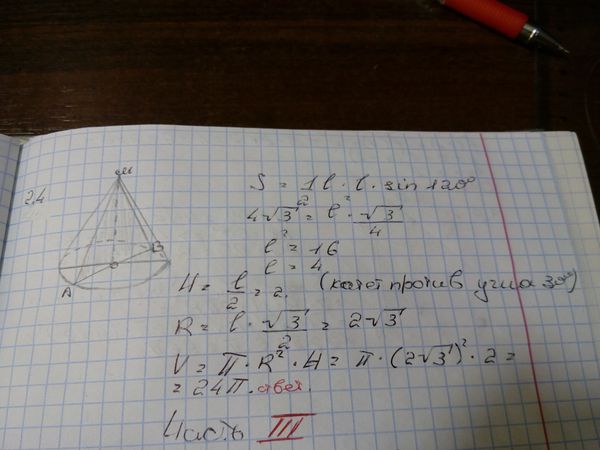 24
M
B
O
A
S = 1 l · l · sin 120°
2
4√3 = l² · √3
4
l² = 16
l = 4
H = l/2 = 2. (катет против угла 30°)
R = l · √3/2 = 2√3
V = π · R² · H = π · (2√3)² · 2 =
= 24π. ответ.
Часть III